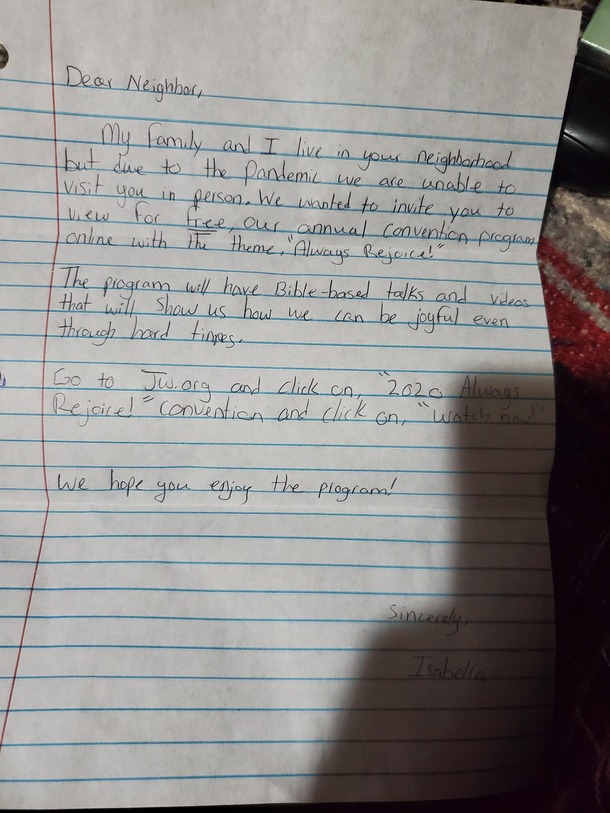 Dear Neighbor,
My family and I live in your neighborhood
but due to the Pandemic we are unable to
visit you in person. We wanted to invite you to
view for free, our annual convention program
online with the theme, "Always Rejoice!"
The program will have Bible-based talks and videos
that will show us how we can be joyful even
through hard times.
Go to Jw.org and click on, "2020 Always
Rejoice!" convention and click on, "Watch now!"
We hope you enjoy the program!
Sincerely,
Isabella